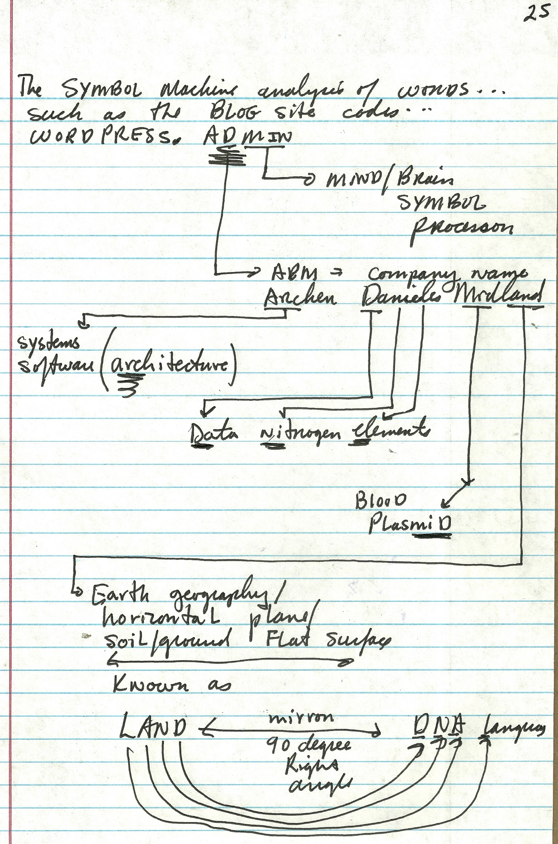 25
The SYMBOL Machine analysis of words...
such as the BLOG site codes...
WORDPRESS. ADMIN
MIND/Brain
SYMBOL
processor
ADM = company name
Archer Danieles Midland
systems
software (architecture)
Data nitrogen elements
Blood
PlasmiD
Earth geography/
horizontal plane/
soil/ground Flat surface
Known as
LAND mirror DNA
90 degree
Right
angle